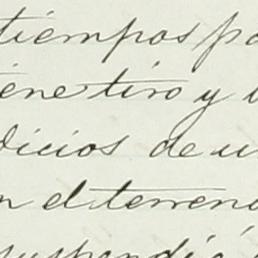 tiempos po
iene tiro y
dicios de u
n el terreno
suspendió